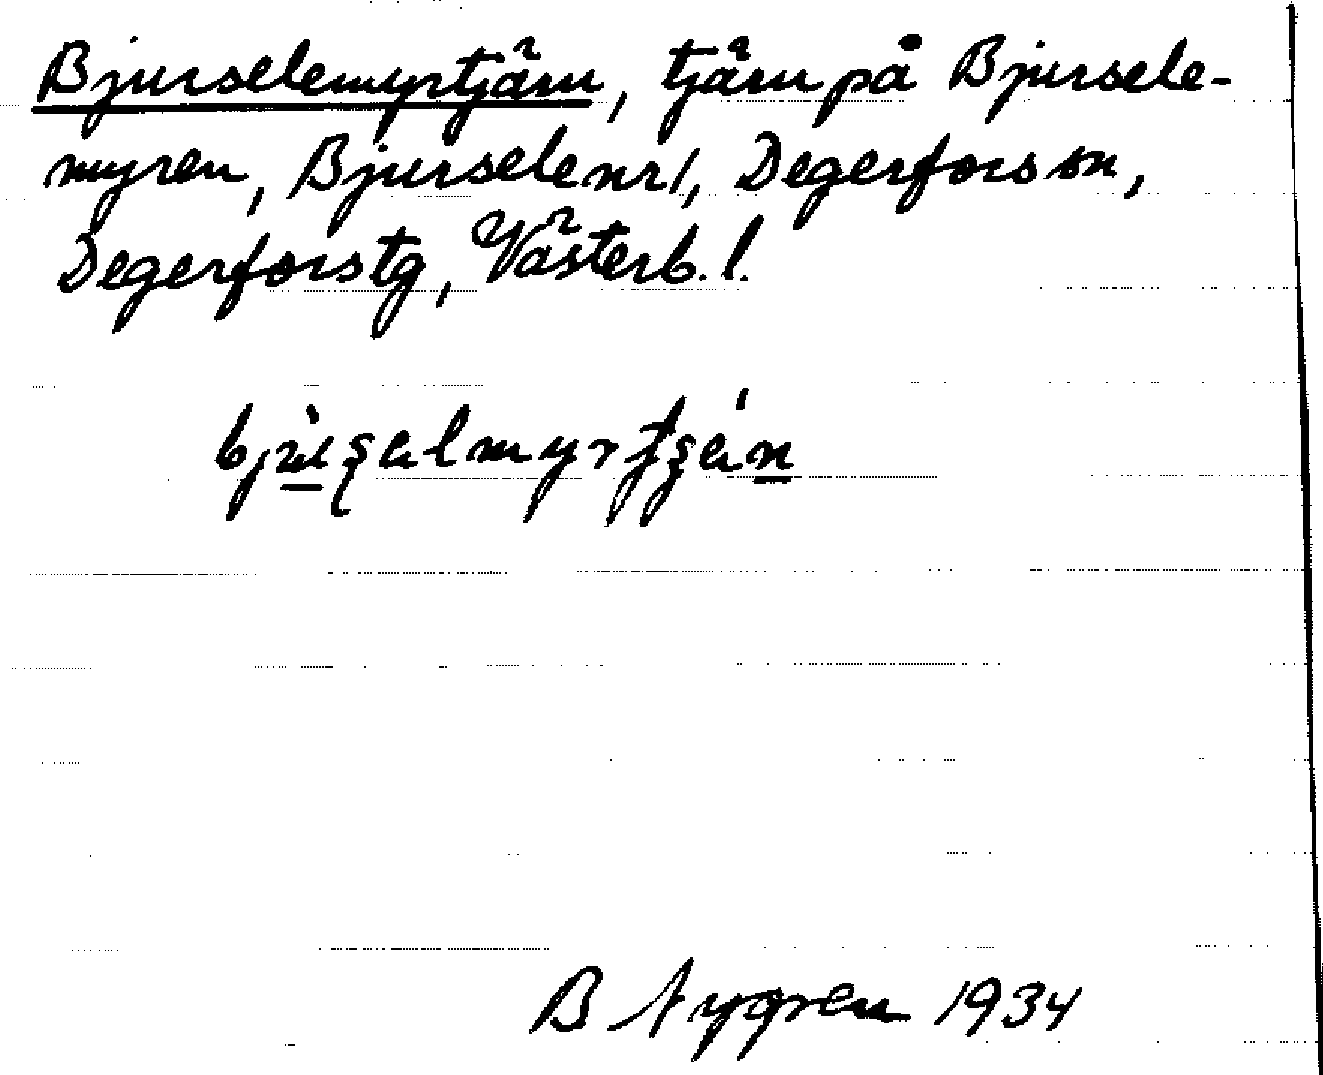 Bjurselemyrtjärn, tjärn på Bjursele-
myren, Bjursele nr 1, Degerfors sn,
Degerfors tg, Västerb. l.
B Nygren 1934